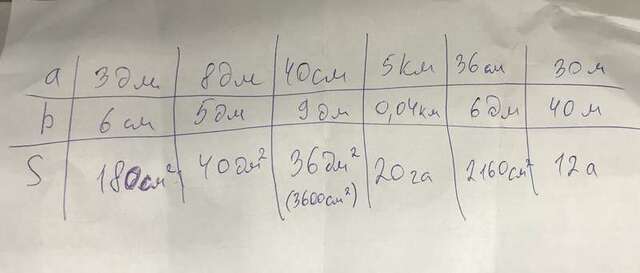 a 3дм 8дм 40см 5км 36см 30м
b 6см 5дм 9дм 0,04км 6дм 40м
S 180см² 40дм² 36дм² 20га 2160см² 12а
(3600см²)